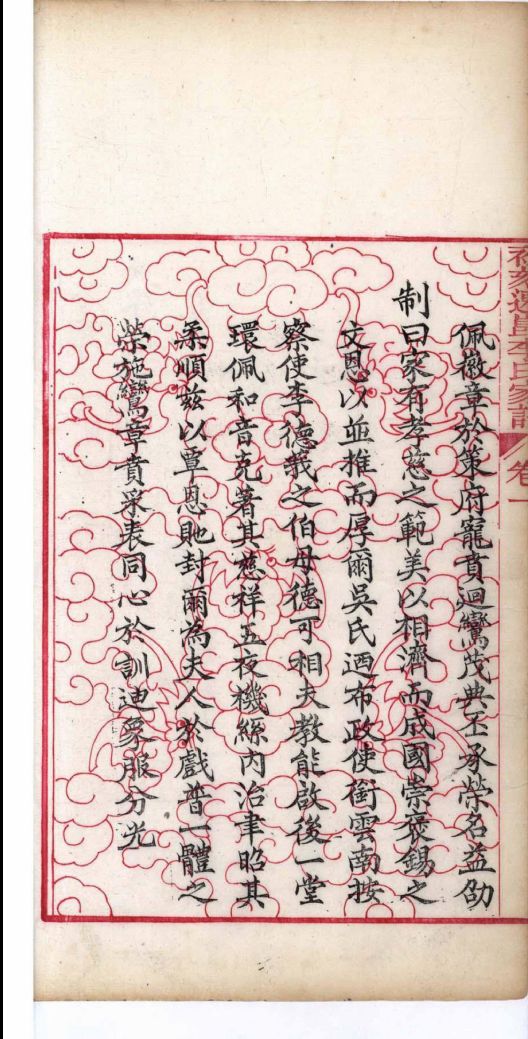 李氏家譜
卷一
佩徽章於策府寵賁迴鸞茂典丕承榮名益劭
制曰家有孝慈之範美以相濟而成國崇褒錫之
文恩以並推而厚爾吳氏迺布政使銜雲南按
察使李德莪之伯母德可相夫教能啟後一堂
環佩和音克著其應祥五夜機絲內治聿昭其
柔順玆以覃恩貤封爾為夫人於戲普一體之
榮施鸞章賁采表同心於訓迪象服分光